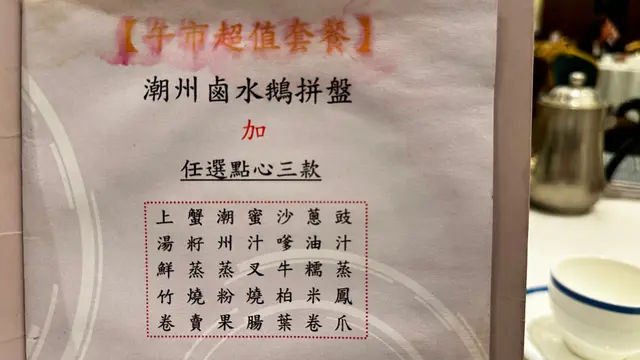 【午市超值套餐】
潮州鹵水鵝拼盤
加
任選點心三款
豉汁蒸鳳爪
蔥油糯米卷
沙嗲牛柏葉
蜜汁叉燒腸
潮州蒸粉果
蟹籽蒸燒賣
上湯鮮竹卷